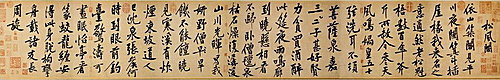 松風閣
依山築閣見平
川夜闌箕斗插
屋椽我來名之
意適然老松魁
梧數百年斧
斤所赦今參天
風鳴媧皇五十
弦洗耳不須
菩薩泉嘉二
三子甚好賢
力貧買酒醉
此筵夜雨鳴廊
到曉懸相看
不歸臥僧氈泉
枯石燥復潺湲
山川光暉為我妍
野僧早飢
不能饘曉見
寒谿有炊煙
東坡道人
已沈泉張侯何
時到眼前釣
臺驚濤可
晝眠怡亭看
篆蛟龍纏安
得此身脫拘攣
舟載諸友長
周旋